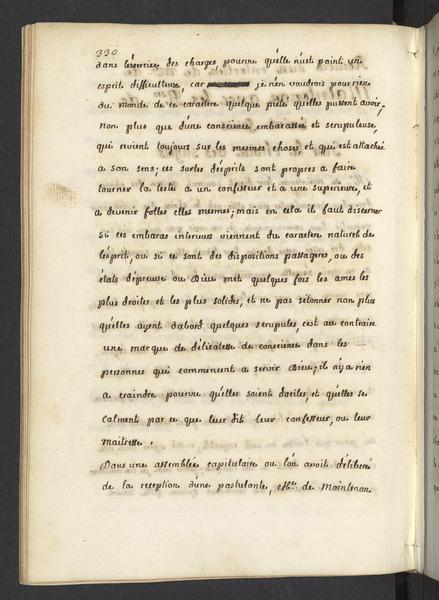 330
dans l'exercice des charges, pourvu qu'elle n'eust point un
esprit difficultueux, car je n'en voudrois pour rien
du monde de ce caractere quelque pieté qu'elles pussent avoir,
non plus que d'une conscience embarassée et scrupuleuse,
qui revient toujours sur les mesmes choses, et qui est attaché
a son sens; ces sortes d'esprits sont propres a faire
tourner la teste a un confesseur et a une superieure, et
a devenir folles elles mesmes; mais en cela il faut discerner
si ces embaras interieurs viennent du caractere naturel de
l'esprit, ou si ce sont des dispositions passageres, ou des
états d'épreuve ou Dieu met quelques fois les ames les
plus droites et les plus solides, et ne pas s'étonner non plus
qu'elles ayent d'abord quelques scrupules, c'est au contraire
une marque de délicatesse de conscience dans les
personnes qui commencent a servir Dieu; il n'y a rien
a craindre pourvu qu'elles soient dociles, et qu'elles se
calment par ce que leur dit leur confesseur, ou leur
maitresse.
Dans une assemblée capitulaire ou l'on avoit déliberé
de la reception d'une postulante, Me. de Maintenon